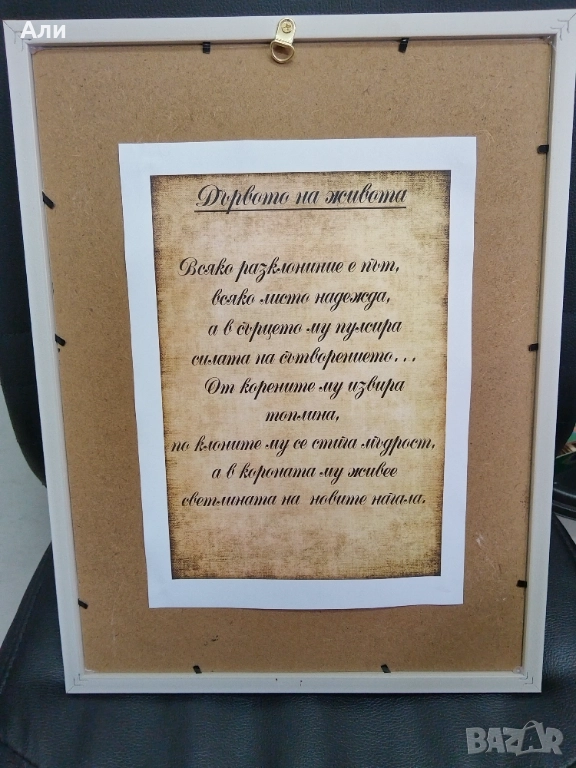 Али
Дървото на живота
Всяко разклонение е път,
всяко листо надежда,
а в сърцето му пулсира
силата на сътворението...
От корените му извира
топлина,
по клоните му се стига мъдрост,
а в короната му живее
светлината на новите начала.
BAZAR